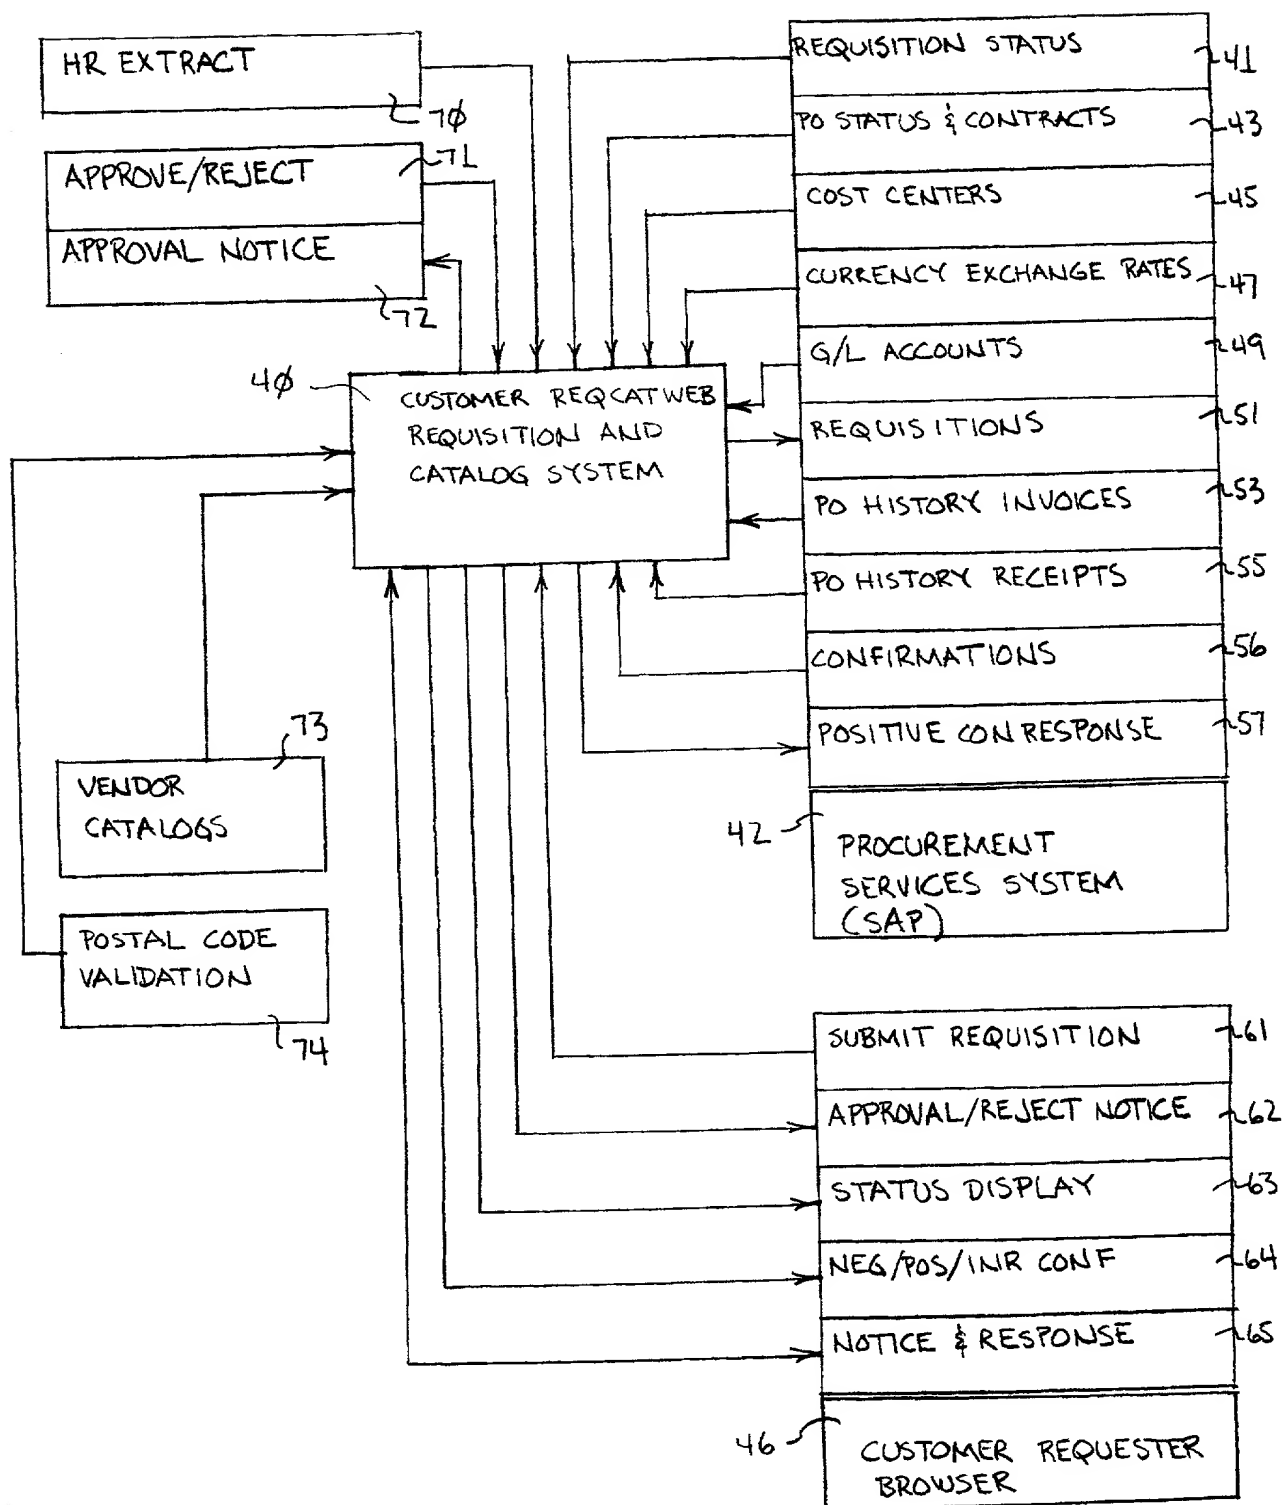 HR EXTRACT
70
APPROVE/REJECT
71
APPROVAL NOTICE
72
40
CUSTOMER REQCATWEB
REQUISITION AND
CATALOG SYSTEM
73
VENDOR
CATALOGS
POSTAL CODE
VALIDATION
74
REQUISITION STATUS
41
PO STATUS & CONTRACTS
43
COST CENTERS
45
CURRENCY EXCHANGE RATES
47
G/L ACCOUNTS
49
REQUISITIONS
51
PO HISTORY INVOICES
53
PO HISTORY RECEIPTS
55
CONFIRMATIONS
56
POSITIVE CON RESPONSE
57
42
PROCUREMENT
SERVICES SYSTEM
(SAP)
SUBMIT REQUISITION
61
APPROVAL/REJECT NOTICE
62
STATUS DISPLAY
63
NEG/POS/INR CONF
64
NOTICE & RESPONSE
65
46
CUSTOMER REQUESTER
BROWSER